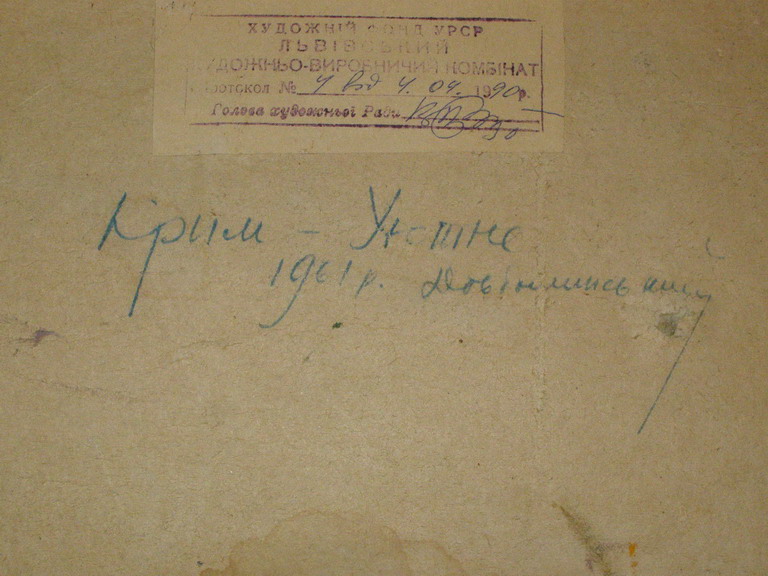 ХУДОЖНІЙ ФОНД УРСР
ЛЬВІВСЬКИЙ
УДОЖНЬО-ВИРОБНИЧИЙ КОМБІНАТ
отокол № 4 від 4. 04. 1990р.
Голова художньої Ради
Крим – Уютне
1961 р. Довбошинський